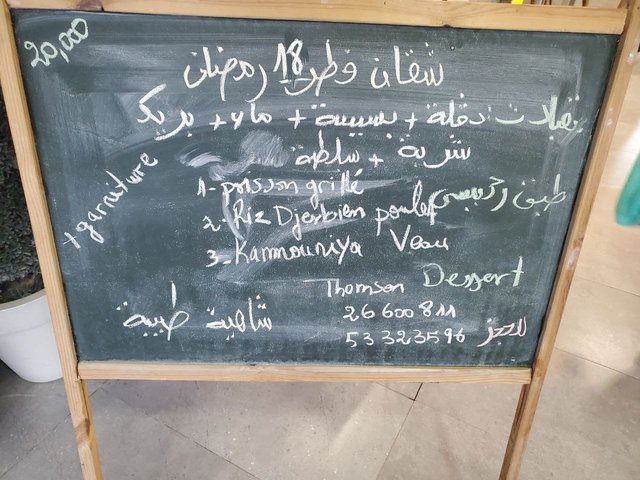 20,000
شقان فطر 18 رمضان
دقلة + بسيسة + ماء + بريك
شربة + سلطة
+ garniture
1- poisson grillé
طبق رئيسي
2- Riz Djerbien poulet
3- Kammouniya Veau
Dessert
Thomson
شاهية طيبة
26 600 811
53 323 596
للحجز